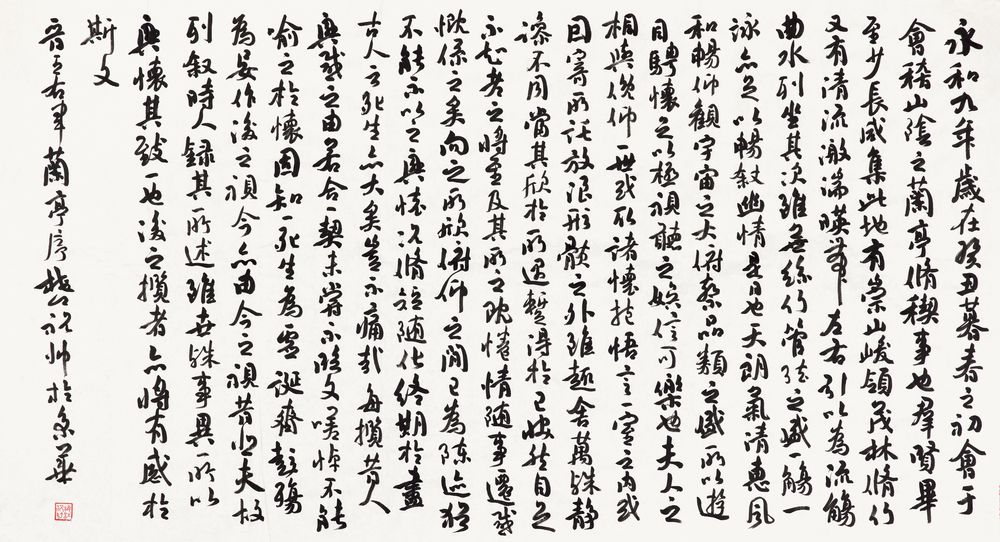 永和九年歲在癸丑暮春之初會于
會稽山陰之蘭亭脩禊事也羣賢畢
至少長咸集此地有崇山峻領茂林脩竹
又有清流激湍暎帶左右引以為流觴
曲水列坐其次雖無絲竹管弦之盛一觴一
詠亦足以暢叙幽情是日也天朗氣清惠風
和暢仰觀宇宙之大俯察品類之盛所以遊
目騁懷足以極視聽之娛信可樂也夫人之
相與俯仰一世或取諸懷抱悟言一室之內或
因寄所託放浪形骸之外雖趣舍萬殊靜
躁不同當其欣於所遇蹔得於己怏然自足
不知老之將至及其所之既惓情隨事遷感
慨係之矣向之所欣俯仰之閒已為陳迹猶
不能不以之興懷況脩短隨化終期於盡
古人云死生亦大矣豈不痛哉每攬昔人
興感之由若合一契未嘗不臨文嗟悼不能
喻之於懷固知一死生為虛誕齊彭殤
為妄作後之視今亦由今之視昔悲夫故
列叙時人錄其所述雖世殊事異所以
興懷其致一也後之攬者亦將有感於
斯文
晉王右軍蘭亭序祝帥於京華